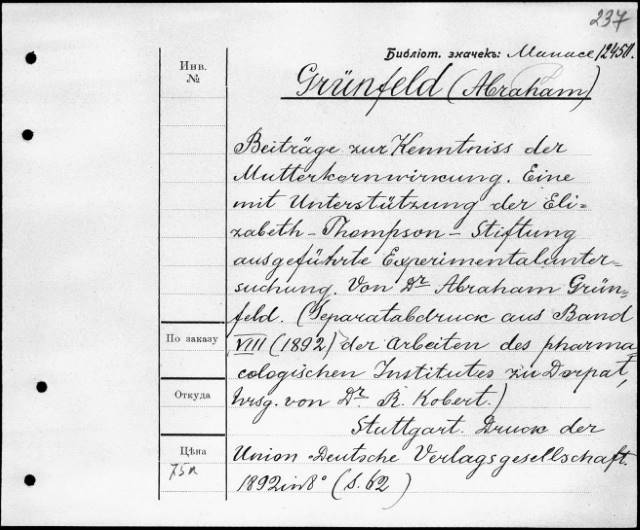 237
Библіот. значекъ: Manace/12450.
Инв.
№
Grünfeld (Abraham)
Beiträge zur Kenntniss der
Mutterkornwirkung. Eine
mit Unterstützung der Eli=
zabeth-Thompson-Stiftung
ausgeführte Experimentalunter=
suchung. Von Dr Abraham Grün=
feld. (Separatabdruck aus Band
По заказу
VIII (1892) der Arbeiten des pharma
cologischen Institutes zu Dorpat,
Откуда
hrsg. von Dr. R. Kobert.)
Stuttgart. Druck der
Цѣна
Union Deutsche Verlagsgesellschaft.
75к
1892 in 8° (S. 62)